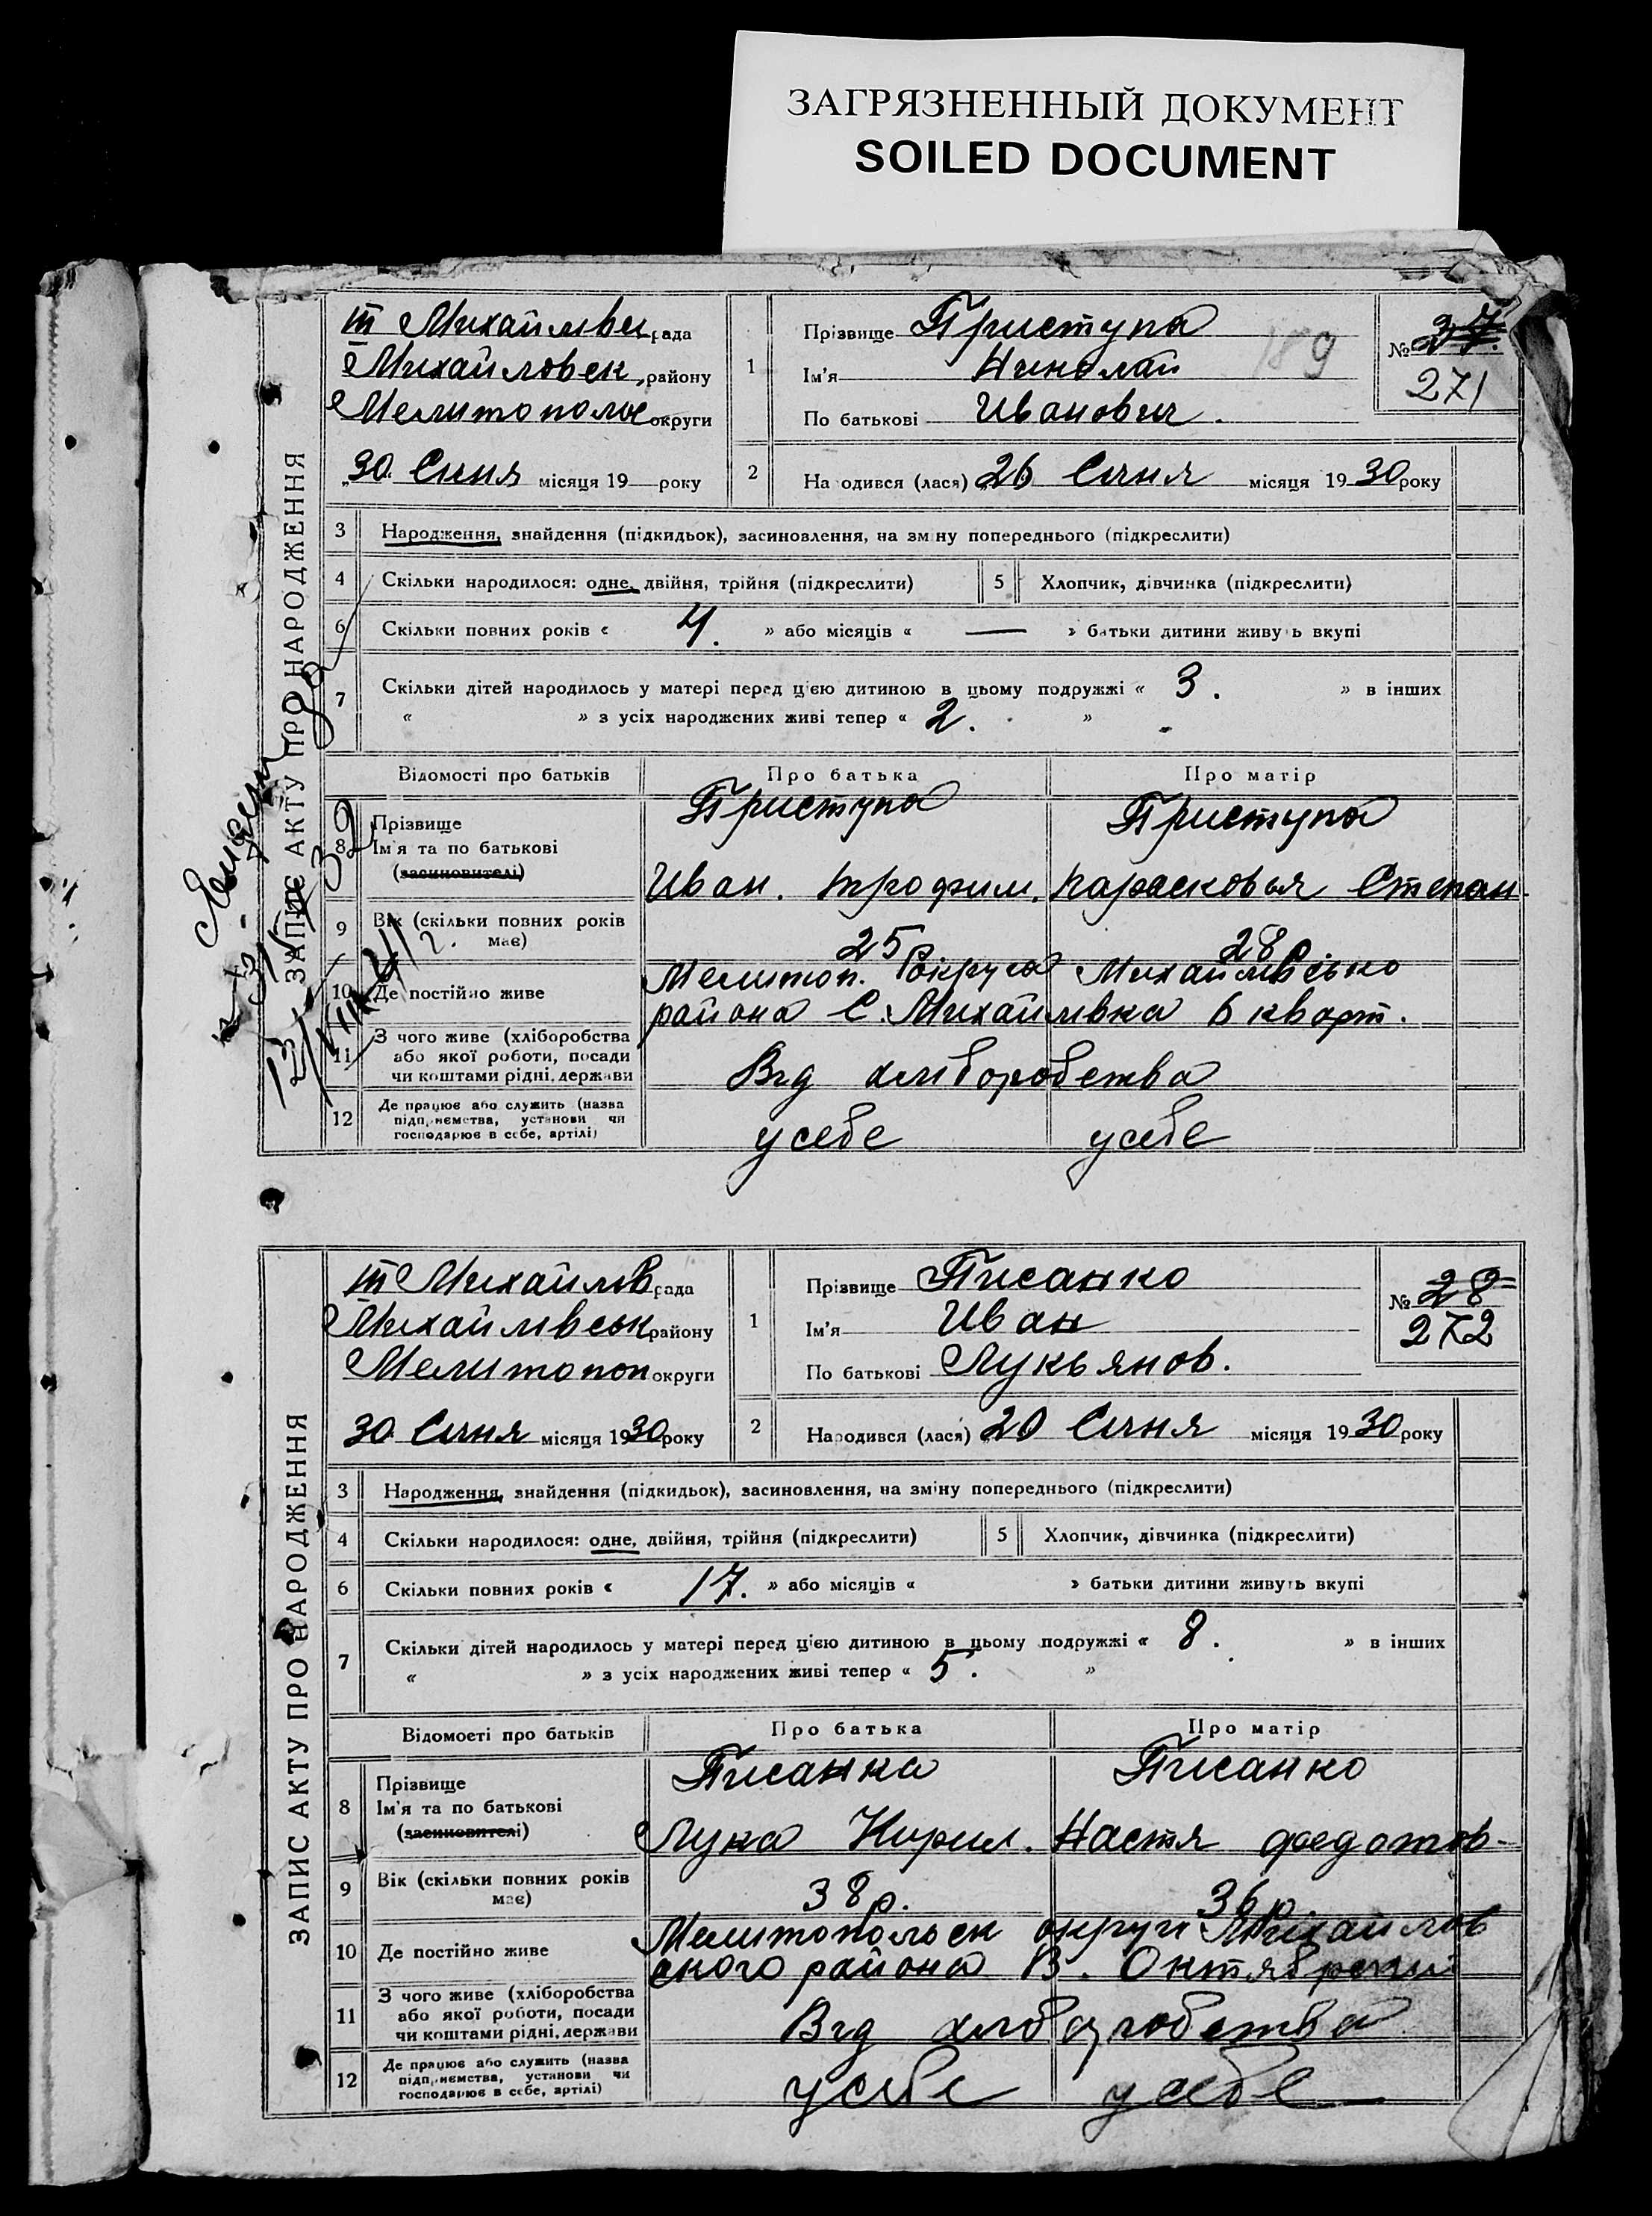 ЗАГРЯЗНЕННЫЙ ДОКУМЕНТ
SOILED DOCUMENT
ЗАПИС АКТУ ПРО НАРОДЖЕННЯ
III Михайлівськ рада
Михайловск району
Мелитопольс округи
30 Січня місяця 19 року
1
Прізвище Приступа
Ім'я Николай
По батькові Иванович.
189
№ 27.
271
2 Народився (лася) 26 Січня місяця 1930 року
3 Народження, знайдення (підкидьок), засиновлення, на зміну попереднього (підкреслити)
4 Скільки народилося: одне, двійня, трійня (підкреслити) 5 Хлопчик, дівчинка (підкреслити)
6 Скільки повних років « 4. » або місяців « — » батьки дитини живуть вкупі
7 Скільки дітей народилось у матері перед цією дитиною в цьому подружжі « 3. » в інших
« » з усіх народжених живі тепер « 2. »
Відомості про батьків Про батька Про матір
8 Прізвище
Ім'я та по батькові
(засиновителі)
Приступа Приступа
Иван. Трофим. Парасковья Степан.
9 Вік (скільки повних років має)
25 р 28 р
10 Де постійно живе
Мелитоп. округа Михайлівсько
района С. Михайлівка 6 кварт.
11 З чого живе (хліборобства
або якої роботи, посади
чи коштами рідні, держави
Від хліборобства
12 Де працює або служить (назва
підприємства, установи чи
господарює в себе, артілі)
у себе у себе
ЗАПИС АКТУ ПРО НАРОДЖЕННЯ
III Михайлов рада
Михайлівськ району
Мелитопол округи
30 Січня місяця 1930 року
1
Прізвище Писанко
Ім'я Иван
По батькові Лукьянов.
№ 28
272
2 Народився (лася) 20 Січня місяця 1930 року
3 Народження, знайдення (підкидьок), засиновлення, на зміну попереднього (підкреслити)
4 Скільки народилося: одне, двійня, трійня (підкреслити) 5 Хлопчик, дівчинка (підкреслити)
6 Скільки повних років « 17. » або місяців « » батьки дитини живуть вкупі
7 Скільки дітей народилось у матері перед цією дитиною в цьому подружжі « 8. » в інших
« » з усіх народжених живі тепер « 5. »
Відомості про батьків Про батька Про матір
8 Прізвище
Ім'я та по батькові
(засиновителі)
Писанка Писанко
Лука Кирил. Настя Федотов-
9 Вік (скільки повних років має)
38 р. 36 р
10 Де постійно живе
Мелитопольск округи Михайлов
ского района В. Октябрский
11 З чого живе (хліборобства
або якої роботи, посади
чи коштами рідні, держави
Від хліборобства
12 Де працює або служить (назва
підприємства, установи чи
господарює в себе, артілі)
у себе у себе